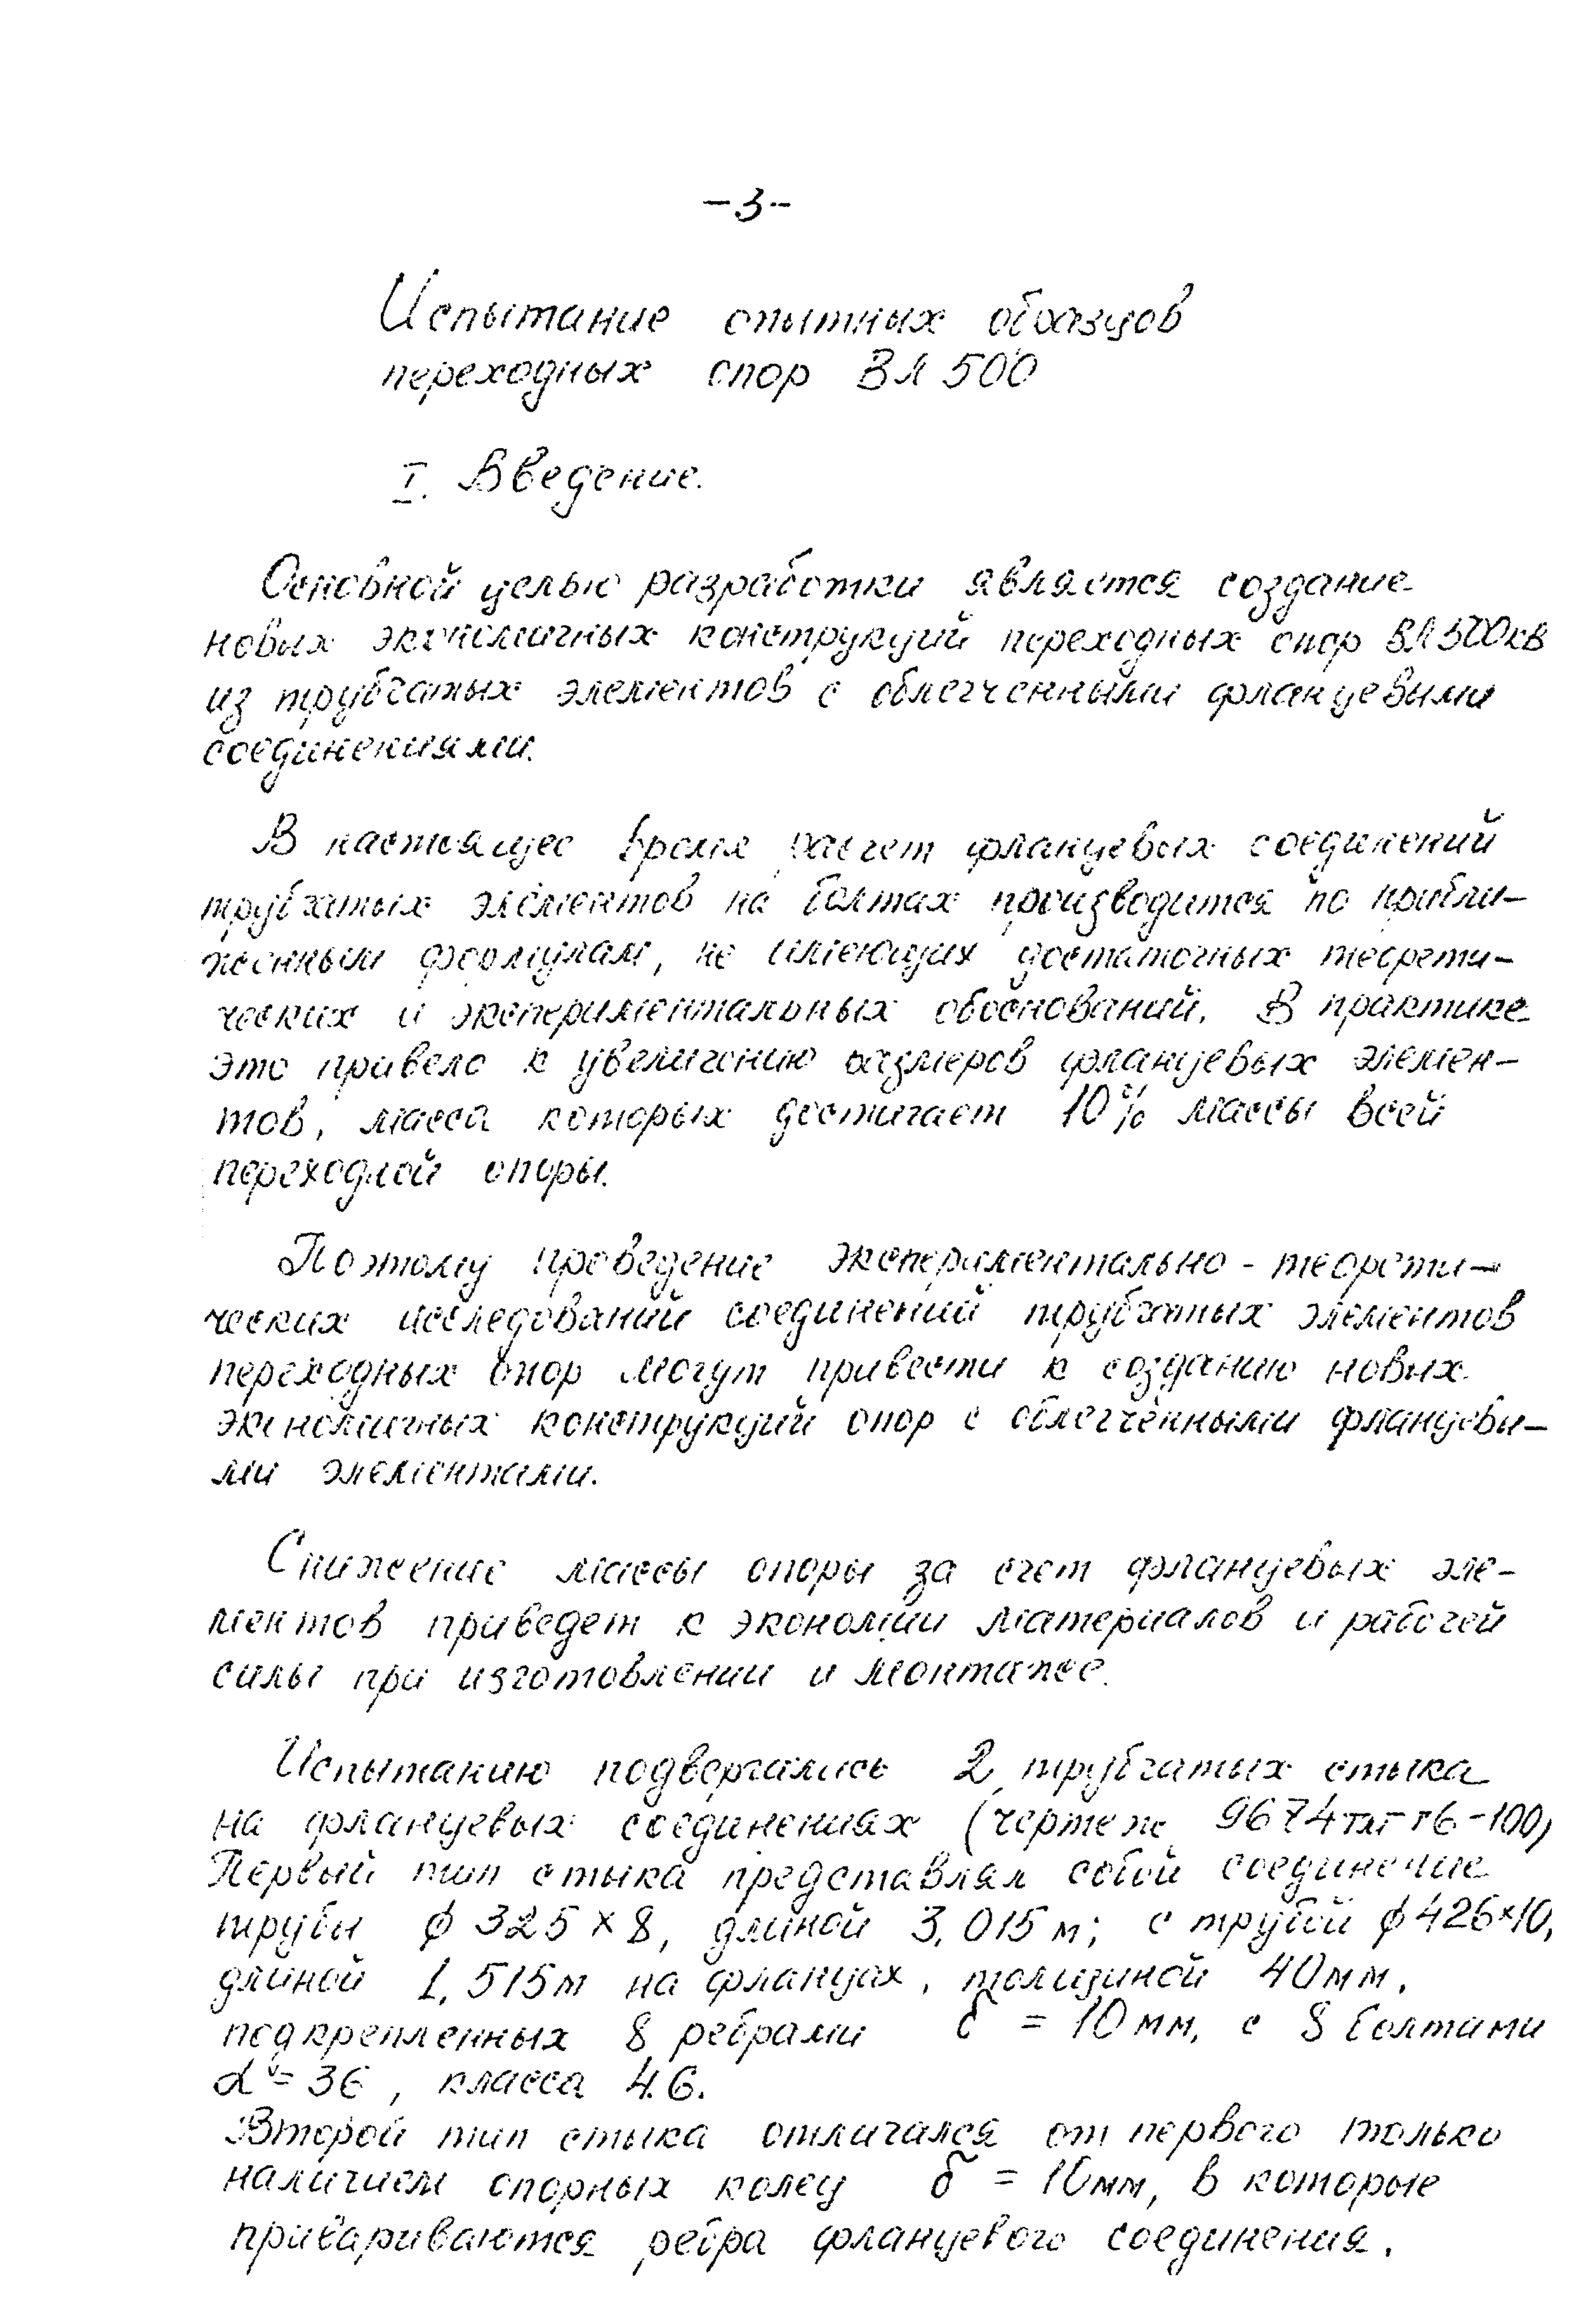 –3–
Испытание опытных образцов
переходных опор ВЛ 500
I. Введение.
Основной целью разработки является создание
новых экономичных конструкций переходных опор ВЛ 500кв
из трубчатых элементов с облегченными фланцевыми
соединениями.
В настоящее время расчет фланцевых соединений
трубчатых элементов на болтах производится по прибли-
женным формулам, не имеющих достаточных теорети-
ческих и экспериментальных обоснований. В практике
это привело к увеличению размеров фланцевых элемен-
тов, масса которых достигает 10% массы всей
переходной опоры.
Поэтому проведение экспериментально - теорети-
ческих исследований соединений трубчатых элементов
переходных опор могут привести к созданию новых
экономичных конструкций опор с облегчёнными фланцевы-
ми элементами.
Снижение массы опоры за счет фланцевых эле-
ментов приведет к экономии материалов и рабочей
силы при изготовлении и монтаже.
Испытанию подвергались 2 трубчатых стыка
на фланцевых соединениях (чертеж 9674тм-т6-100)
Первый тип стыка представлял собой соединение
трубы ϕ 325 × 8, длиной 3,015 м; с трубой ϕ 426×10,
длиной 1,515м на фланцах, толщиной 40мм,
подкрепленных 8 ребрами δ = 10 мм, с 8 болтами
d = 36, класса 4.6.
Второй тип стыка отличался от первого только
наличием опорных колец δ = 10мм, в которые
привариваются ребра фланцевого соединения.